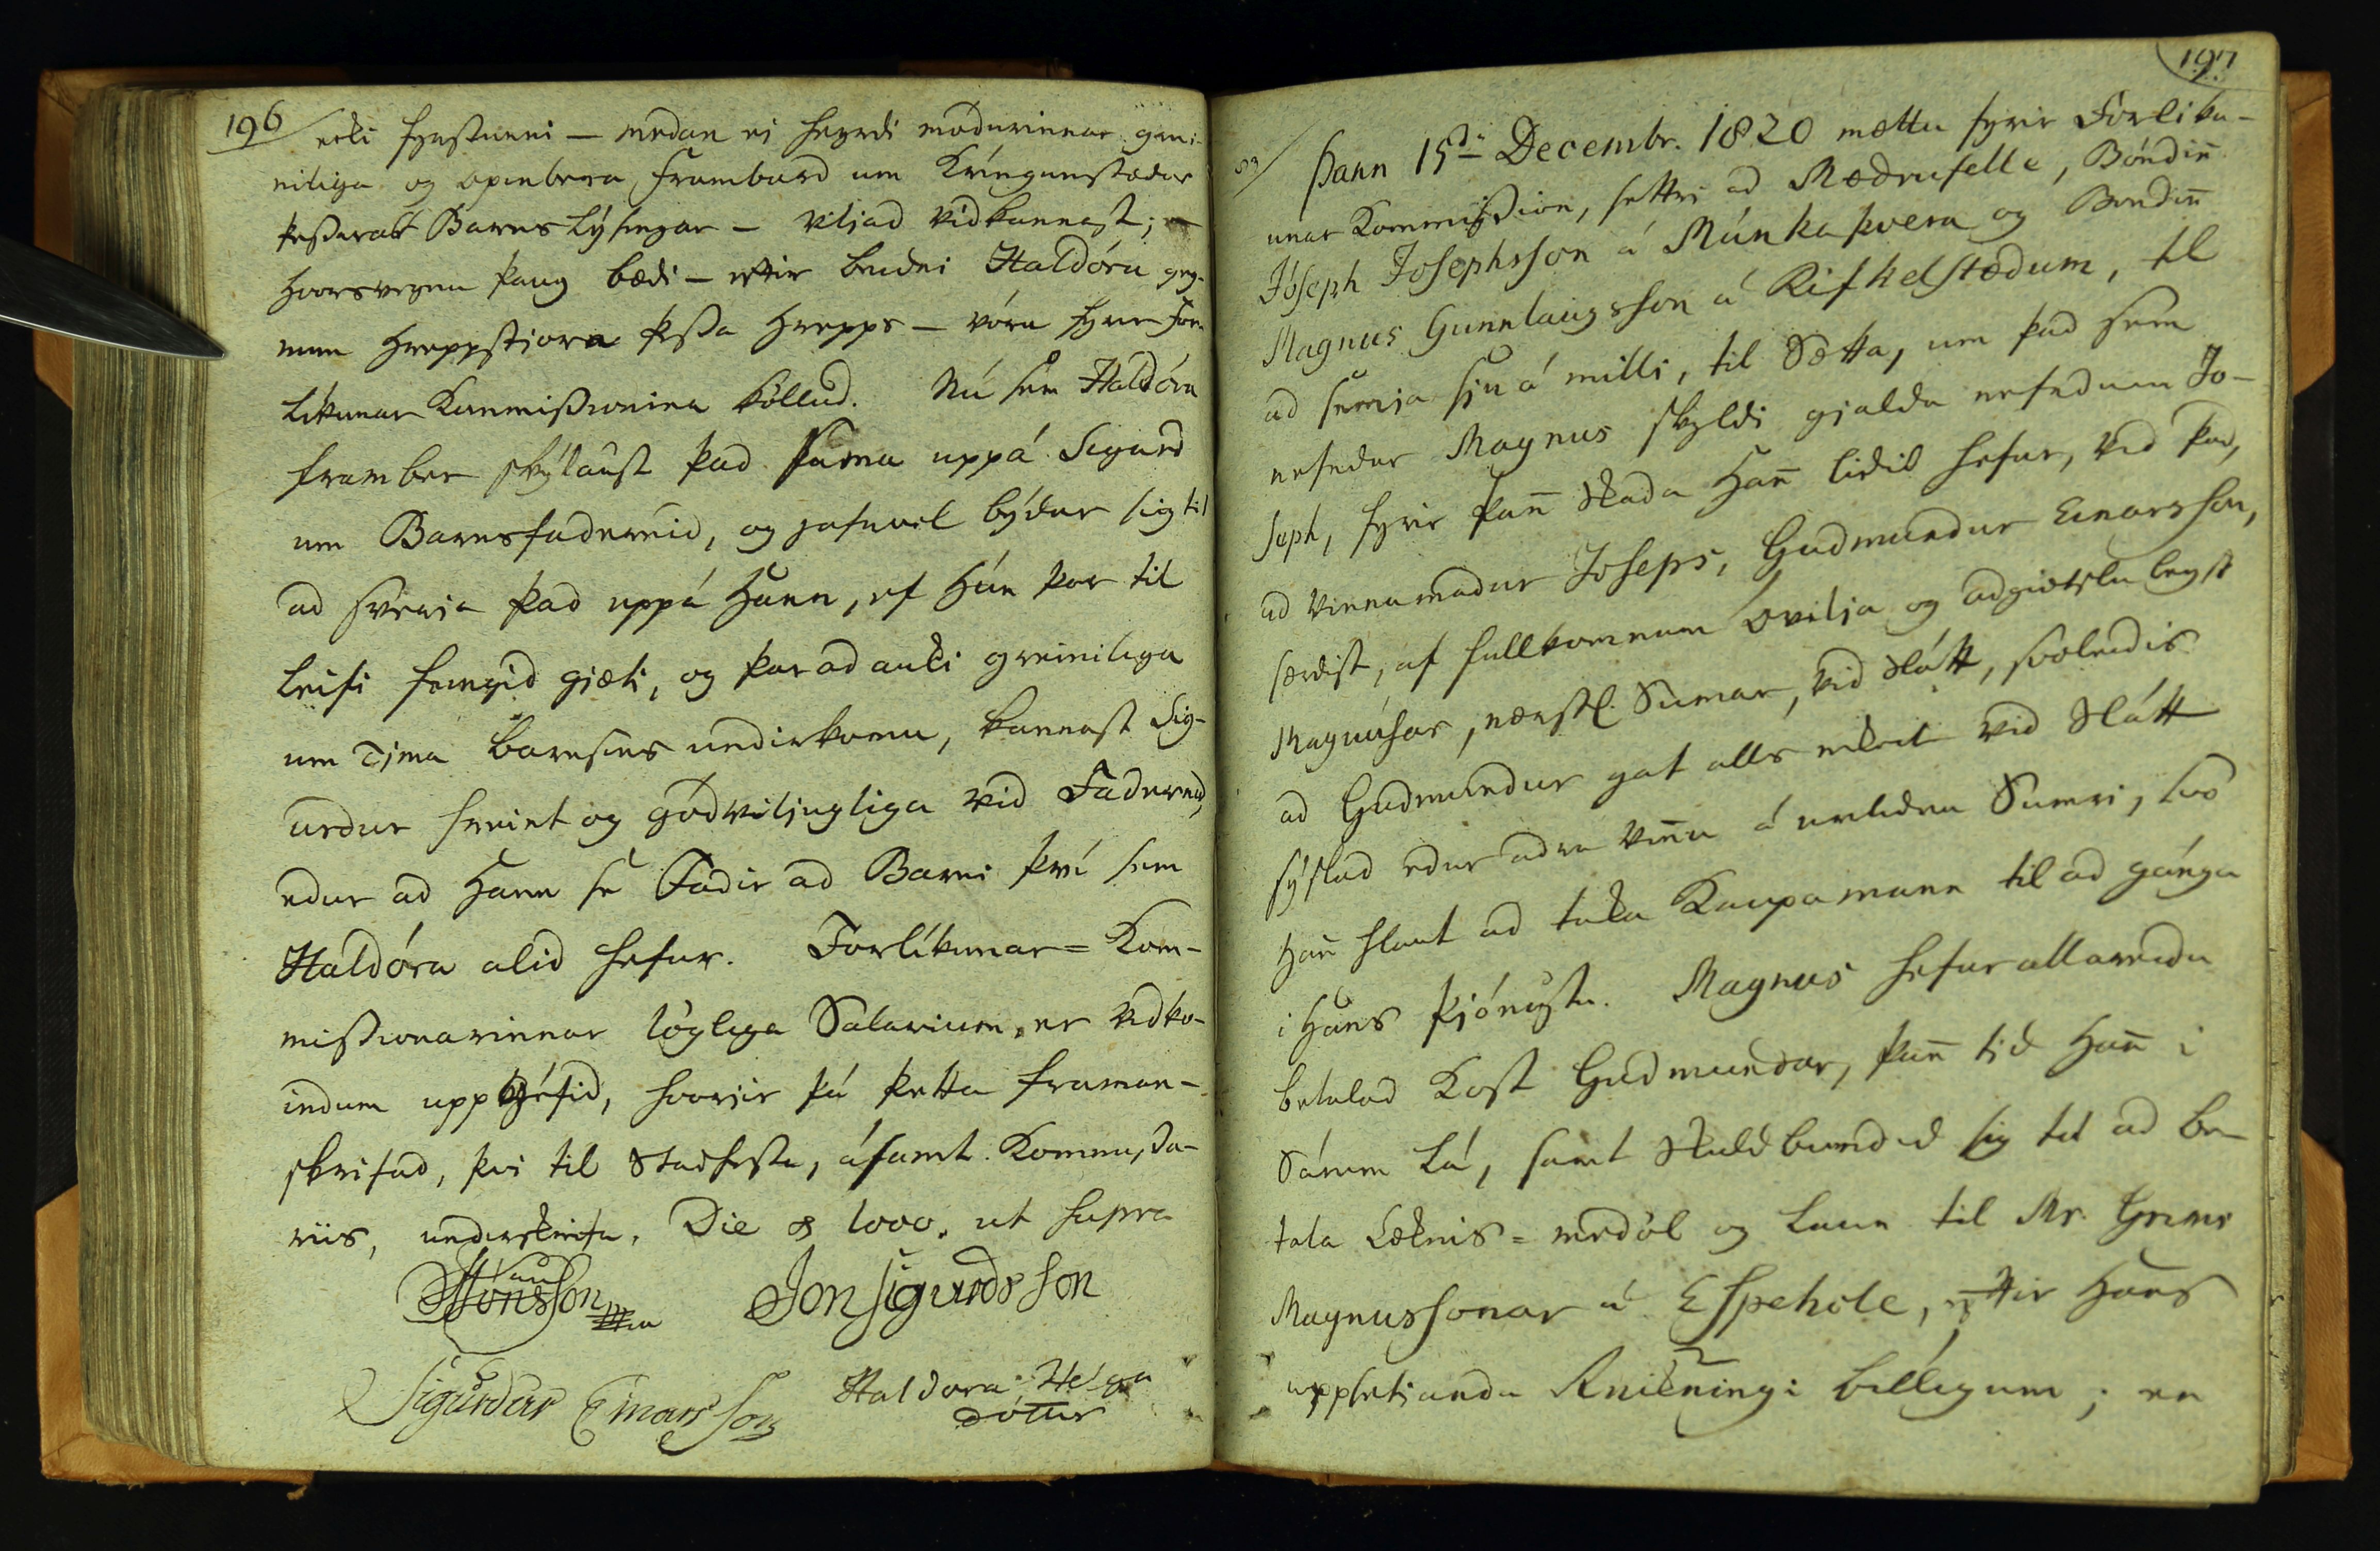 196
ecki fyrstunni - medan ei heyrdi modurinnar grei-
niliga og opinbera framburd um Kringumstædur
þessarar Barns Lýsingar - viljad vidkannast;
hvorsvegna þaug bædi - eftir beidni Haldóru geg-
num Hreppstiora þessa Hrepps - vóru fyrir For-
líkunar Kommissionina köllud. Nú sem Haldóra
framber skýlaust þad sama uppá Sigurd
um Barnsfadernid, og jafnvel býdur sig til
ad sverja þad uppá Hann, ef hún þar til
leifi feingid giæti, og þar ad auki greiniliga
um Tima barnsins undirkomu, kannast Sig-
urdur hreint og gódviljugliga vid Fadernid,
edur ad Hann sé Fadir ad Barni því sem
Haldóra alid hefur. Forlíkunar = Kom-
missionarinnar lögliga Salarium, er vidko-
endum uppgéfid, hvorjir þá þetta framan-
skrifad, þvi til Stadfestu, ásamt Kommissa-
riis, underskrifa. Die & loco, ut supra
HJónsson Jon Sigurdsson
Sigurdur Einarsson Haldora Helga
dóttur
197
Þann 15da Decembr. 1820 mættu fyrir Forlíku-
unar Kommission, settri ad Mödrufelle, Bóndin̄
Jóseph Josephsson á Múnkaþvera og Bondin̄
Magnus Gunnlaugsson á Rifkelstödum, til
ad semja sín á milli, til Sætta, um þad sem
nefndur Magnus skyldi gjalda nefndum Jo-
seph, fyrir þan̄ Skada Han̄ lidid hefur, vid þad,
ad vinnumadur Joseps, Gudmundur Einarsson,
særdist, af fullkomnum óvilja og adgiætsluleysi
Magnúsar, næstl. Sumar, vid Slátt, svoleidis
ad Gudmundur gat alls eckert vid Slátt
sýslad edur adra vin̄u á umlidnu Sumri, svo
Han̄ hlaut ad taka Kaupamann til ad gánga
i Hans þjónustu. Magnus hefur allareidu
betalad Kost Gudmundar, þan̄ tíd Han̄ i
Sárum Lá, samt Skuldbundid sig til ad be-
tala Læknis = medöl og Laun til Mr. Grims
Magnussonar á Espehóle, eftir Hans
uppsetjandi Reikningi billigum; en